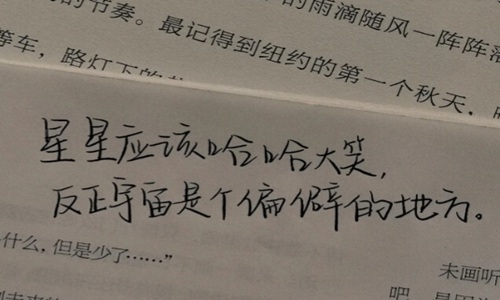 的节奏。最记得到纽约的第一个秋天,
的雨滴随风一阵阵
等车,路灯下的
星星应该哈哈大笑,
反正宇宙是个偏僻的地方。
什么,但是少了……”
未画听
吧